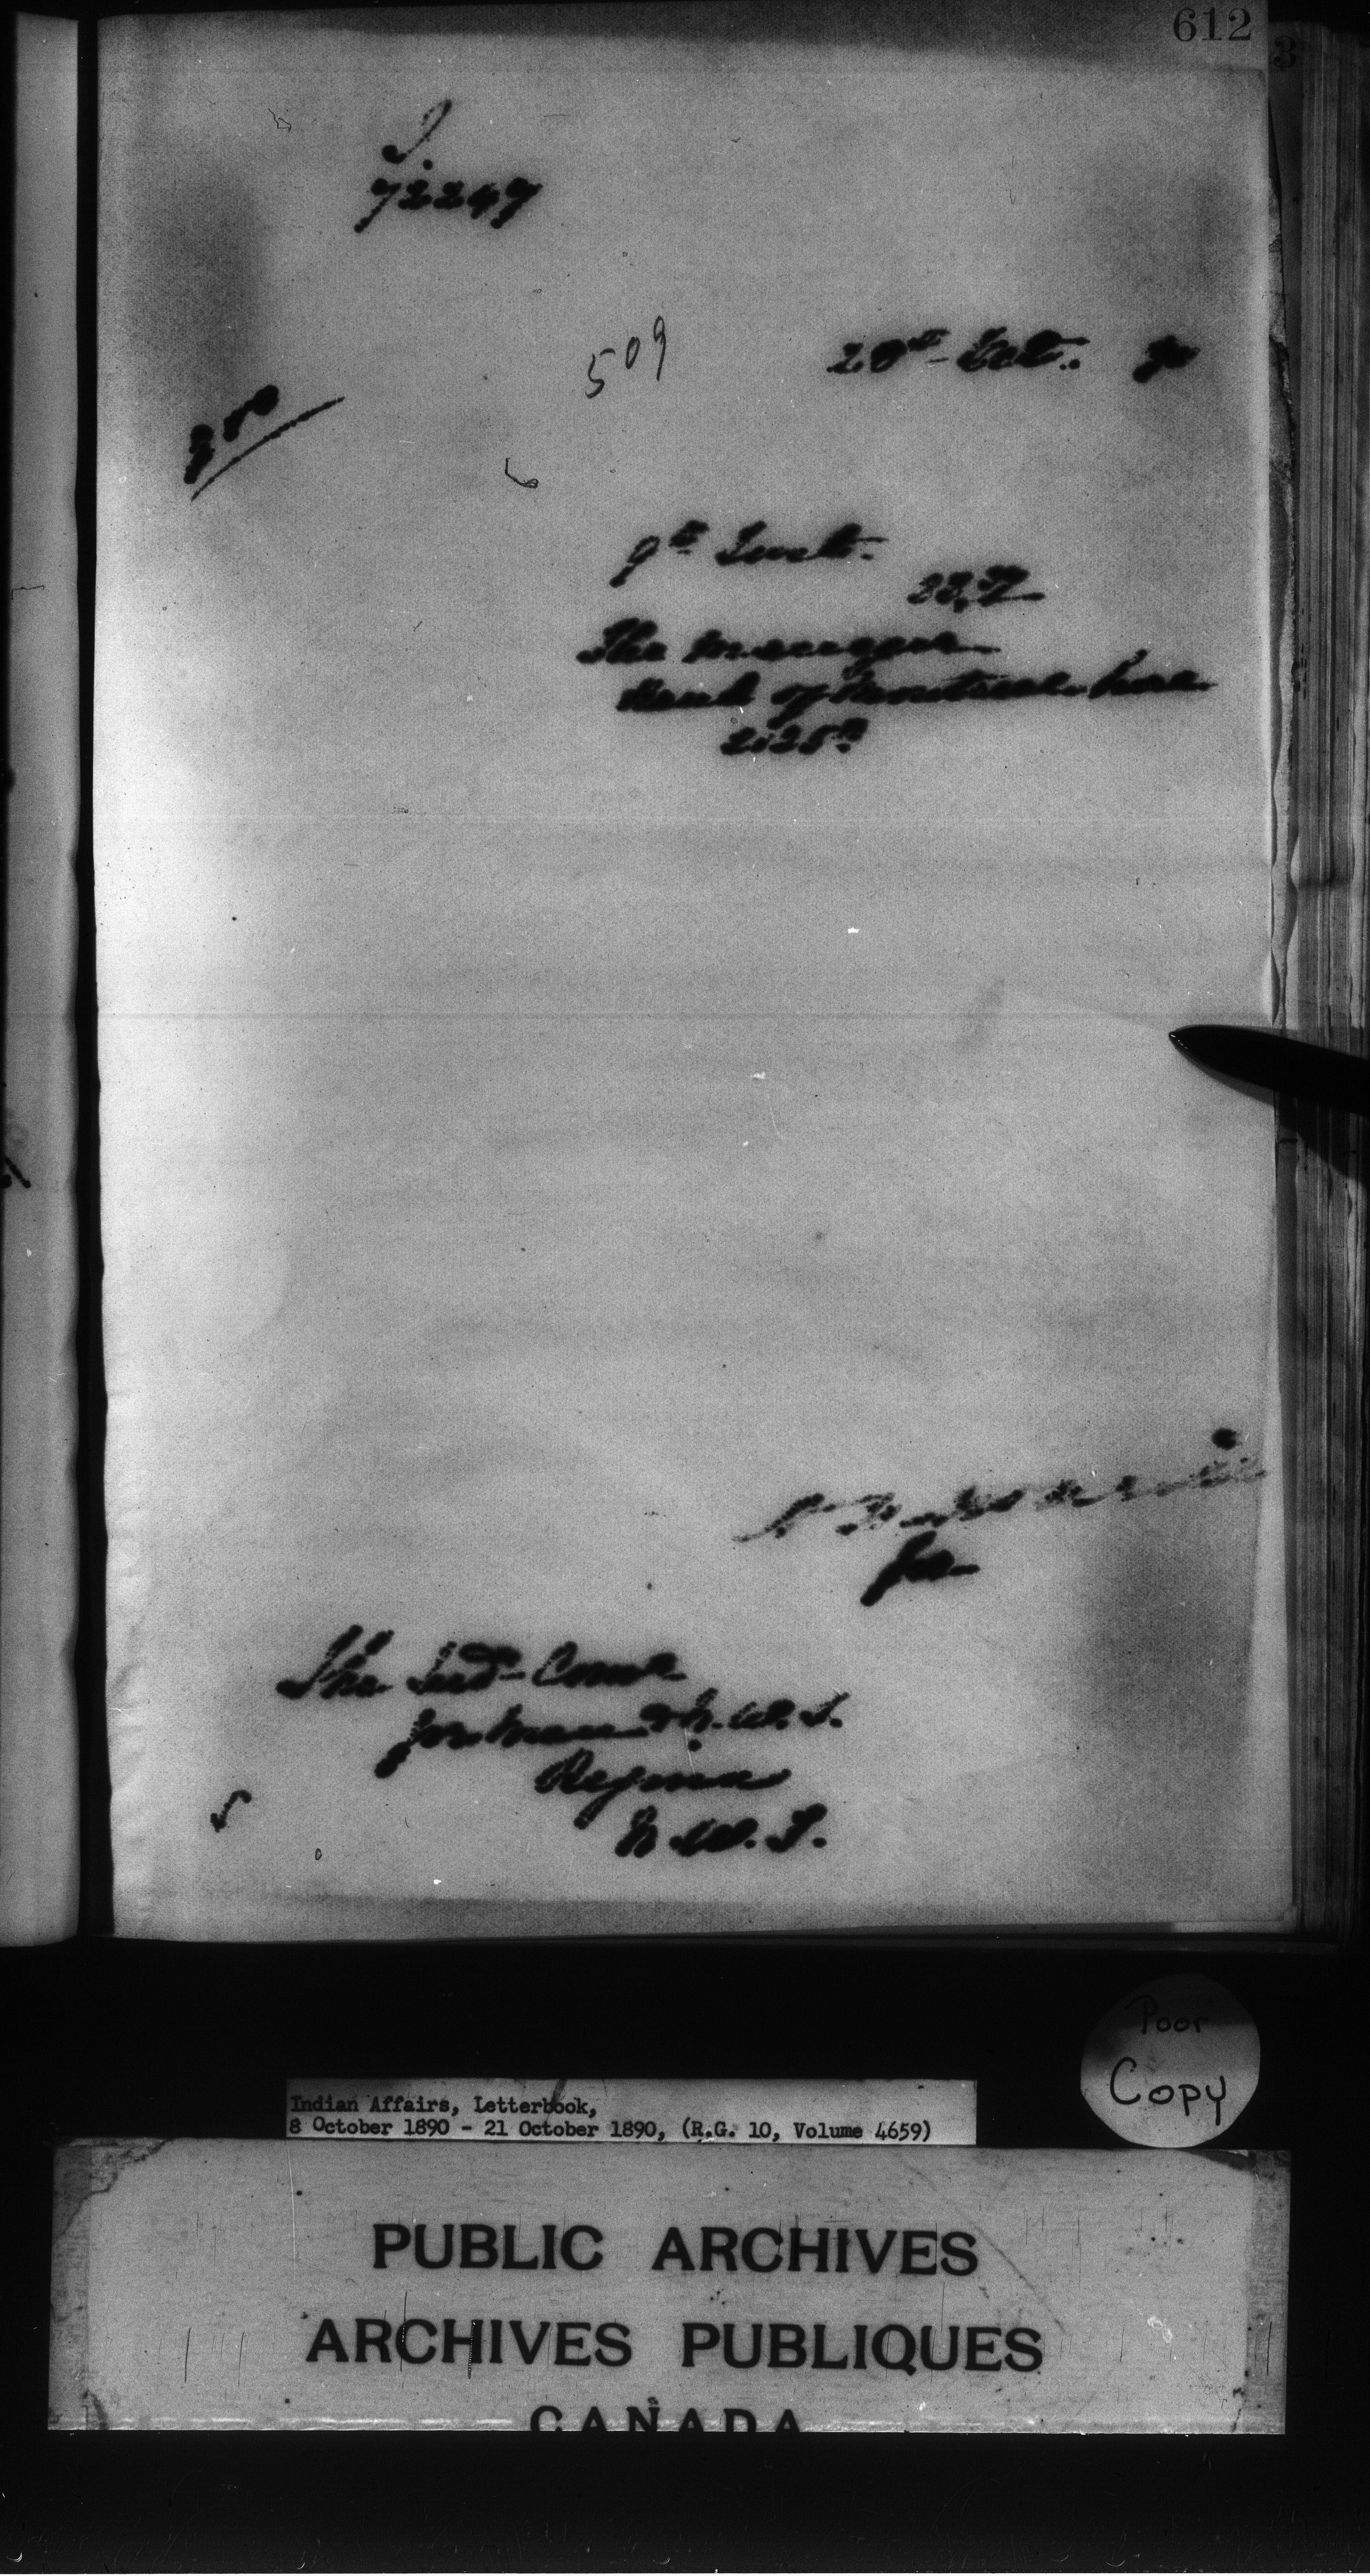 612
3
72247
509
20th Oct. 90
9th Inst.
The Manager
Bank of Montreal here
The Ind. Comr
for Man. & N.W.T.
Regina
N.W.T.
Poor
Copy
Indian Affairs, Letterbook,
8 October 1890 - 21 October 1890, (R.G. 10, Volume 4659)
PUBLIC ARCHIVES
ARCHIVES PUBLIQUES
CANADA